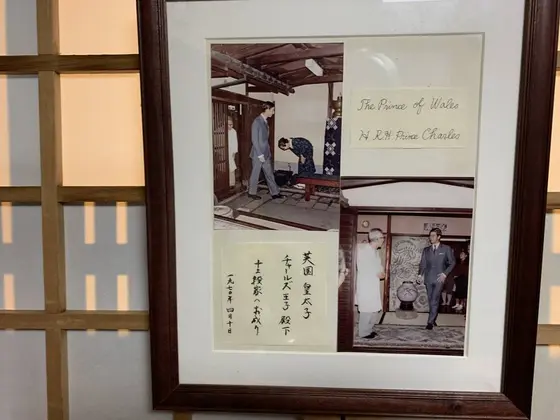 The Prince of Wales
H R H Prince Charles
英国 皇太子
チャールズ 王子 殿下
十二段家へお成り
一九七〇年 四月十日